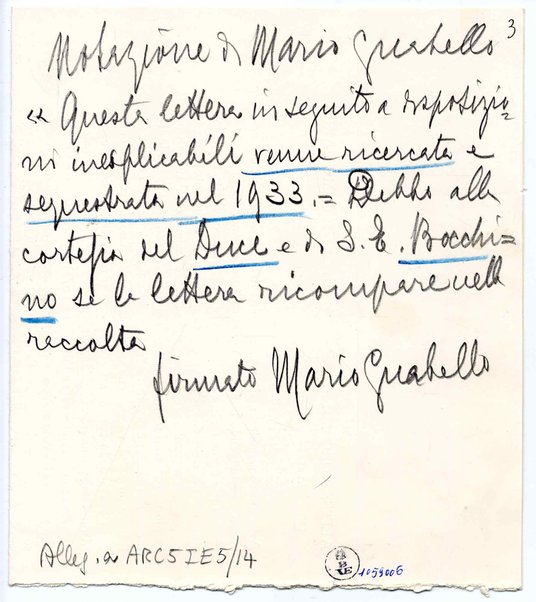 3
Notazione di Mario Guabello
« Questa lettera in seguito a disposizio=
ni inesplicabili venne ricercata e
sequestrata nel 1933. = Debbo alla
cortesia del Duce e di S. E. Bocchi=
no se la lettera ricompare nella
raccolta
firmato Mario Guabello
Alleg. a ARC5IE5/14
1059006